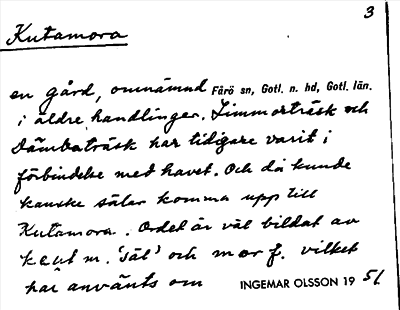 3
Kutamora
en gård, omnämnd Fårö sn, Gotl. n. hd, Gotl. län.
i äldre handlingar. Limmorträsk och
Dämbaträsk har tidigare varit i
förbindelse med havet. Och då kunde
kanske sälar komma upp till
Kutamora. Ordet är väl bildat av
kaut m. 'säl' och mor f. vilket
har använts om INGEMAR OLSSON 1951